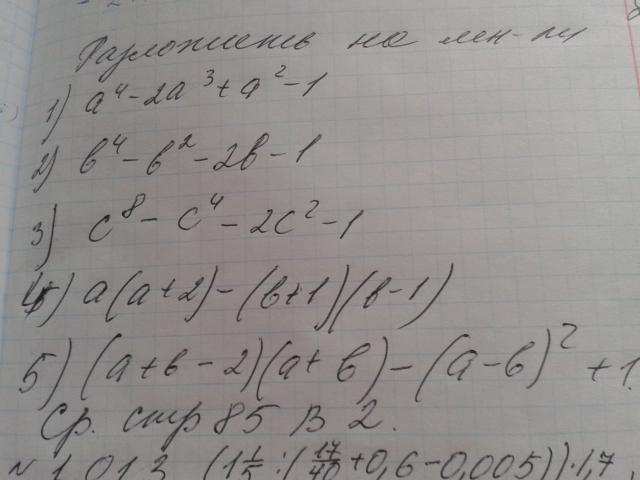 Разложить на мн-ли
1) a⁴-2a³+a²-1
2) b⁴-b²-2b-1
3) c⁸-c⁴-2c²-1
4) a(a+2)-(b+1)(b-1)
5) (a+b-2)(a+b)-(a-b)²+1
Ср. стр 85 В 2.
N 1.013 (1 1/5:(17/40+0,6-0,005))·1,7